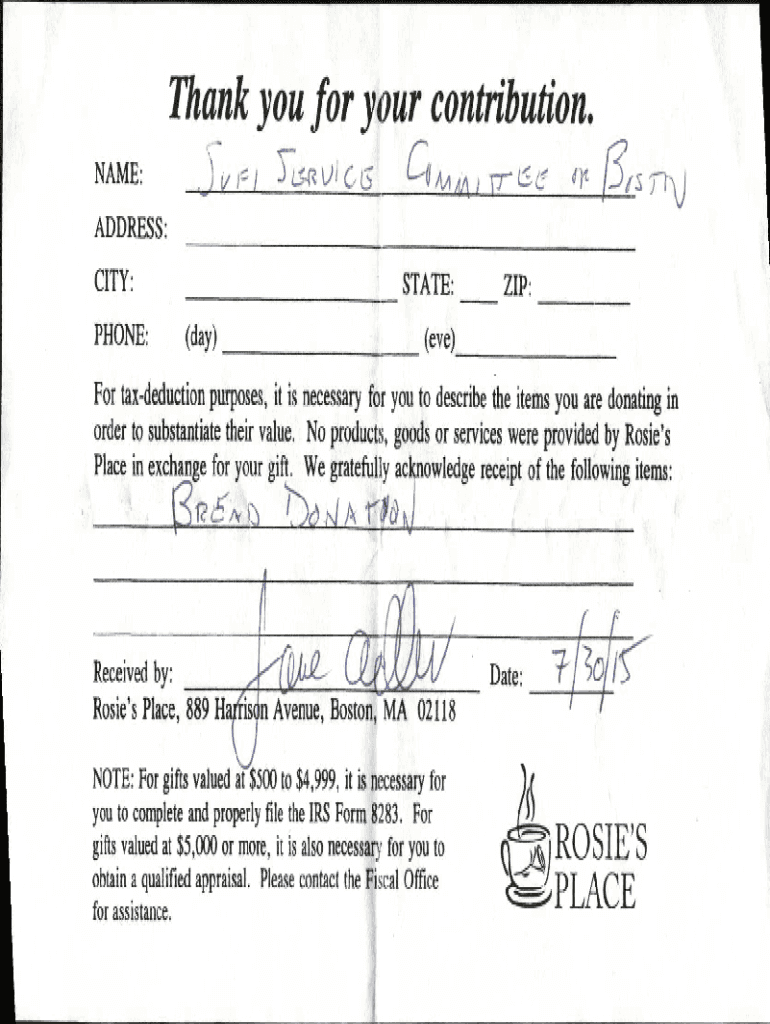 Thank you for your contribution.
NAME: SUFI SERVICE COMMITTEE OF BOSTON
ADDRESS:
CITY: STATE: ZIP:
PHONE: (day) (eve)
For tax-deduction purposes, it is necessary for you to describe the items you are donating in
order to substantiate their value. No products, goods or services were provided by Rosie's
Place in exchange for your gift. We gratefully acknowledge receipt of the following items:
BREAD DONATION
Received by: Jane Date: 7/30/15
Rosie's Place, 889 Harrison Avenue, Boston, MA 02118
NOTE: For gifts valued at $500 to $4,999, it is necessary for
you to complete and properly file the IRS Form 8283. For
gifts valued at $5,000 or more, it is also necessary for you to
obtain a qualified appraisal. Please contact the Fiscal Office
for assistance.
ROSIE'S
PLACE